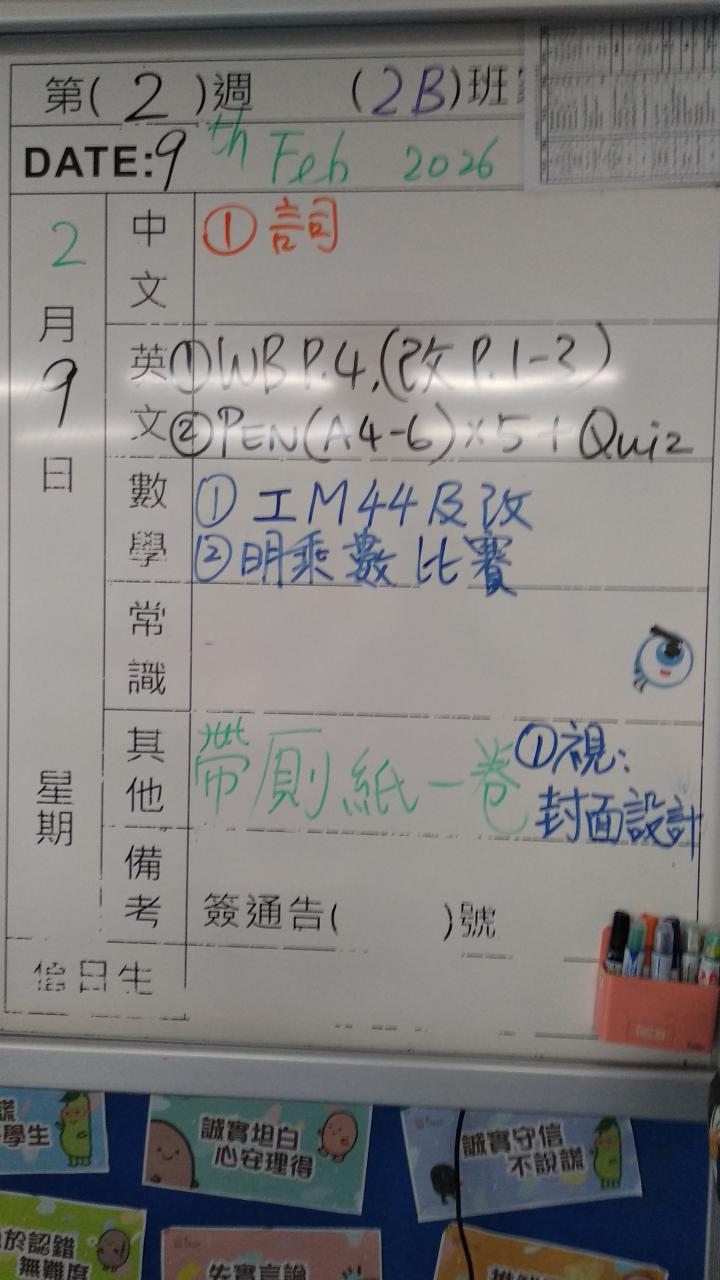 第(2)週 (2B)班
DATE:9th Feb 2026
2月9日
星期
中文
① 詞
英文
①WB P.4,(改 P.1-3)
②PEN(A4-6)×5+Quiz
數學
① 工M44及改
②明乘數比賽
常識
其他
帶厠紙一卷
①視:
封面設計
備考
簽通告( )號
值日生
學生
誠實坦白
心安理得
誠實守信
不說謊
於認錯
無難度
失實言論